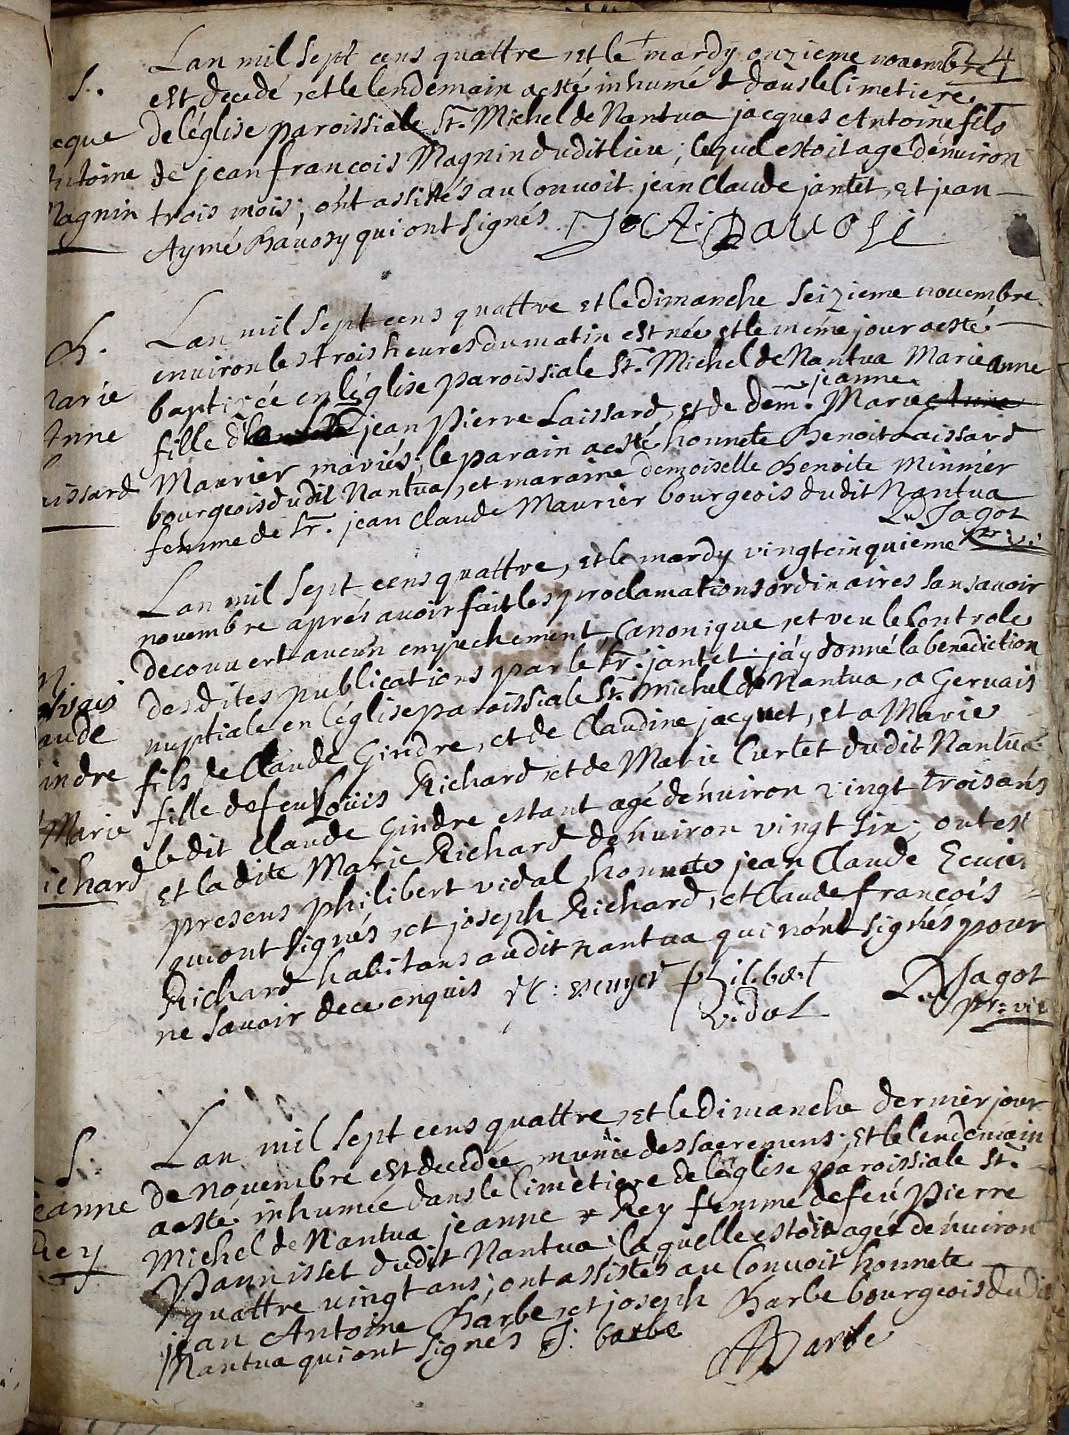 24
S.
Lan mil sept cens quattre et le mardy onzieme novembre
est decedé, et le lendemain a esté inhumé dans le cimetiere
de léglise paroissiale St. Michel de Nantua jacques Antoine fils
de jean françois Magnin dudit lieu; lequel estoit agé dénviron
trois mois; ont assistés au Convoit jean Claude jantet, et jean
Aymé Bavosy qui ont signés.
cque
Antoine
Magnin
B.
arie
Anne
aissard
Lan mil sept cens quattre et le dimanche seizieme novembre
environ les trois heures du matin est née et le méme jour a esté
baptizée en léglise paroissiale St. Michel de Nantua Marie anne
fille d jean Pierre Laissard, et de dem. Marie jeanne
Maurier mariés; le parain a esté honnete Benoit Laissard
bourgeois dudit Nantua, et maraine demoiselle Benoite Minnier
femme de Sr. jean Claude Maurier bourgeois dudit Nantua
Jagot
Lan mil sept cens quattre, et le mardy vingtcinquieme
novembre aprés avoir fait les proclamations ordinaires sans avoir
decouvert aucun empechement, Canonique, et veu le Controle
desdites publications par le Sr. jantet, j'ay donné la benediction
nuptiale en léglise paroissiale St. Michel de Nantua, a Gervais
fils de Claude Gindre, et de Claudine jacquet, et a Marie
fille de feu Loüis Richard et de Marie Curtet dudit Nantua
ledit Claude Gindre estant agé dénviron vingt trois ans
et la dite Marie Richard dénviron vingt six; ont est
presens philibert vidal, honnete jean Claude Ecuier
qui ont signés, et joseph Richard, et Claude françois
Richard habitans audit nantua qui nónt signés pour
ne scavoir de ce enquis
philibert
vidal
Jagot
pr. vic
M.
rvais
aude
indre
Marie
ichard
S.
eanne
Rey
Lan mil sept cens quattre, et le dimanche dernier jour
de novembre est decedée munie des sacremens; et le lendemain
a esté inhumée dans le cimetiere de léglise paroissiale St.
Michel de Nantua jeanne Rey femme de feu Pierre
Pannisset dudit Nantua; la quelle estoit agée dénviron
quattre vingt ans; ont assistés au Convoit honnete
jean Antoine Barbe, et joseph Barbe bourgeois dudit
Nantua qui ont signés J: barbe
Barbe